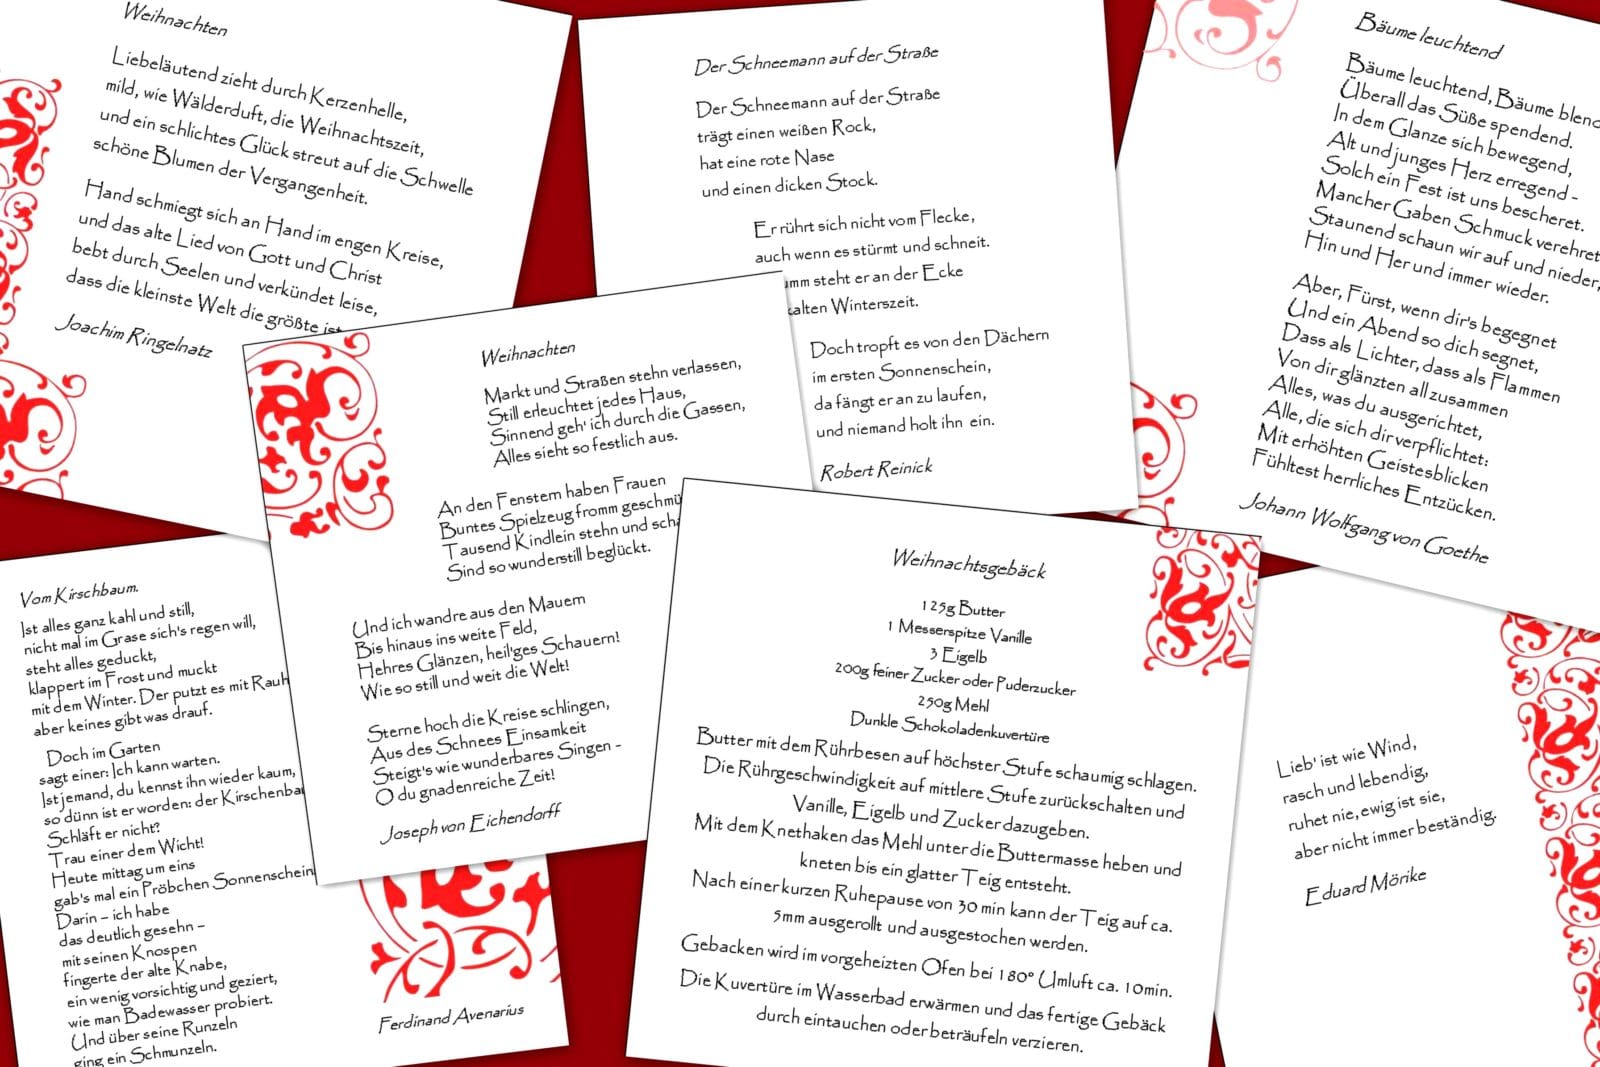 Weihnachten
Liebeläutend zieht durch Kerzenhelle,
mild, wie Wälderduft, die Weihnachtszeit,
und ein schlichtes Glück streut auf die Schwelle
schöne Blumen der Vergangenheit.
Hand schmiegt sich an Hand im engen Kreise,
und das alte Lied von Gott und Christ
bebt durch Seelen und verkündet leise,
dass die kleinste Welt die größte ist
Joachim Ringelnatz
Der Schneemann auf der Straße
Der Schneemann auf der Straße
trägt einen weißen Rock,
hat eine rote Nase
und einen dicken Stock.
Er rührt sich nicht vom Flecke,
auch wenn es stürmt und schneit.
steht er an der Ecke
kalten Winterszeit.
Doch tropft es von den Dächern
im ersten Sonnenschein,
da fängt er an zu laufen,
und niemand holt ihn ein.
Robert Reinick
Bäume leuchtend
Bäume leuchtend, Bäume blend
Überall das Süße spendend.
In dem Glanze sich bewegend,
Alt und junges Herz erregend -
Solch ein Fest ist uns bescheret.
Mancher Gaben Schmuck verehret
Staunend schaun wir auf und nieder,
Hin und Her und immer wieder.
Aber, Fürst, wenn dir's begegnet
Und ein Abend so dich segnet,
Dass als Lichter, dass als Flammen
Von dir glänzten all zusammen
Alles, was du ausgerichtet,
Alle, die sich dir verpflichtet:
Mit erhöhten Geistesblicken
Fühltest herrliches Entzücken.
Johann Wolfgang von Goethe
Weihnachten
Markt und Straßen stehn verlassen,
Still erleuchtet jedes Haus,
Sinnend geh' ich durch die Gassen,
Alles sieht so festlich aus.
An den Fenstern haben Frauen
Buntes Spielzeug fromm geschmü
Tausend Kindlein stehn und scha
Sind so wunderstill beglückt.
Und ich wandre aus den Mauern
Bis hinaus ins weite Feld,
Hehres Glänzen, heil'ges Schauern!
Wie so still und weit die Welt!
Sterne hoch die Kreise schlingen,
Aus des Schnees Einsamkeit
Steigt's wie wunderbares Singen -
O du gnadenreiche Zeit!
Joseph von Eichendorff
Vom Kirschbaum.
Ist alles ganz kahl und still,
nicht mal im Grase sich's regen will,
steht alles geduckt,
klappert im Frost und muckt
mit dem Winter. Der putzt es mit Rauh
aber keines gibt was drauf.
Doch im Garten
sagt einer: Ich kann warten.
Ist jemand, du kennst ihn wieder kaum,
so dünn ist er worden: der Kirschenba
Schläft er nicht?
Trau einer dem Wicht!
Heute mittag um eins
gab's mal ein Pröbchen Sonnenschein
Darin – ich habe
das deutlich gesehn –
mit seinen Knospen
fingerte der alte Knabe,
ein wenig vorsichtig und geziert,
wie man Badewasser probiert.
Und über seine Runzeln
ging ein Schmunzeln.
Ferdinand Avenarius
Weihnachtsgebäck
125g Butter
1 Messerspitze Vanille
3 Eigelb
200g feiner Zucker oder Puderzucker
250g Mehl
Dunkle Schokoladenkuvertüre
Butter mit dem Rührbesen auf höchster Stufe schaumig schlagen.
Die Rührgeschwindigkeit auf mittlere Stufe zurückschalten und
Vanille, Eigelb und Zucker dazugeben.
Mit dem Knethaken das Mehl unter die Buttermasse heben und
kneten bis ein glatter Teig entsteht.
Nach einer kurzen Ruhepause von 30 min kann der Teig auf ca.
5mm ausgerollt und ausgestochen werden.
Gebacken wird im vorgeheizten Ofen bei 180° Umluft ca. 10min.
Die Kuvertüre im Wasserbad erwärmen und das fertige Gebäck
durch eintauchen oder beträufeln verzieren.
Lieb' ist wie Wind,
rasch und lebendig,
ruhet nie, ewig ist sie,
aber nicht immer beständig.
Eduard Mörike